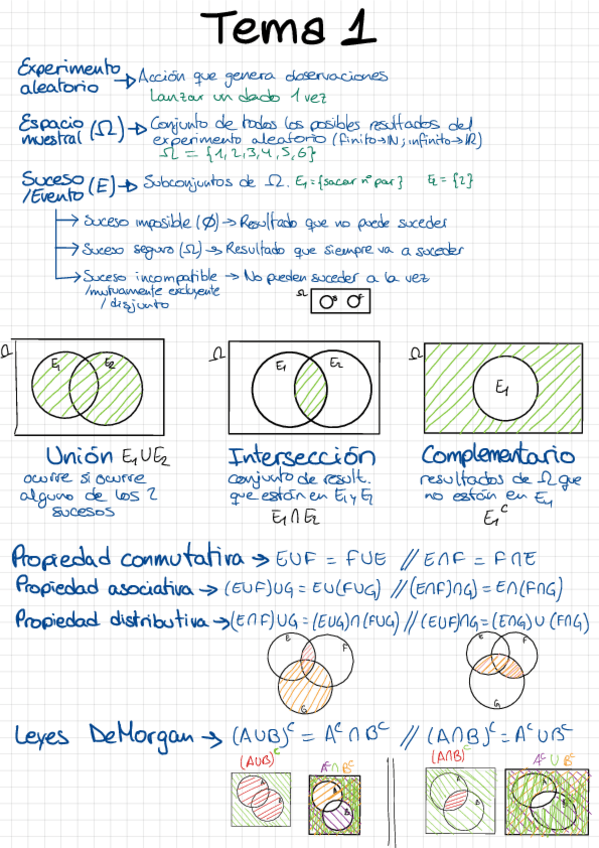 Tema 1
Experimento aleatorio → Acción que genera observaciones
Lanzar un dado 1 vez
Espacio muestral (Ω) → Conjunto de todos los posibles resultados del
experimento aleatorio (finito→ℕ; infinito→ℝ)
Ω = {1,2,3,4,5,6}
Suceso /Evento (E) → Subconjuntos de Ω. E₁={sacar nº par} E₂={2}
→ Suceso imposible (∅) → Resultado que no puede suceder
→ Suceso seguro (Ω) → Resultado que siempre va a suceder
→ Suceso incompatible → No pueden suceder a la vez
/mutuamente excluyente
/disjunto
Ω
Ω E₁ E₂
Ω E₁ E₂
Ω E₁
Unión E₁∪E₂
ocurre si ocurre
alguno de los 2
sucesos
Intersección
conjunto de result.
que están en E₁ y E₂
E₁∩E₂
Complementario
resultados de Ω que
no están en E₁
E₁ᶜ
Propiedad conmutativa → E∪F = F∪E // E∩F = F∩E
Propiedad asociativa → (E∪F)∪G = E∪(F∪G) // (E∩F)∩G) = E∩(F∩G)
Propiedad distributiva → (E∩F)∪G = (E∪G)∩(F∪G) // (E∪F)∩G = (E∩G)∪(F∩G)
E F G
E F G
Leyes DeMorgan → (A∪B)ᶜ = Aᶜ∩Bᶜ // (A∩B)ᶜ = Aᶜ∪Bᶜ
(A∪B)ᶜ Aᶜ∩Bᶜ (A∩B)ᶜ Aᶜ∪Bᶜ